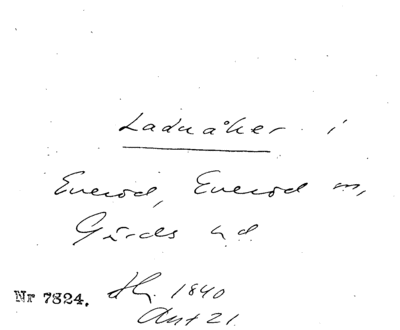 Ladnåker i
Everöd, Everöd sn,
Gärds hd
Nr 7824. Sk. 1840
Avs 21